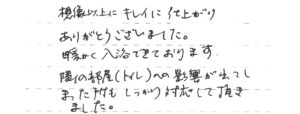 想像以上に キレイに 仕上がり
ありがとうございました。
暖かく入浴できております。
隣の部屋(トイレ)への影響が出てし
まった所も しっかり対応して頂き
ました。